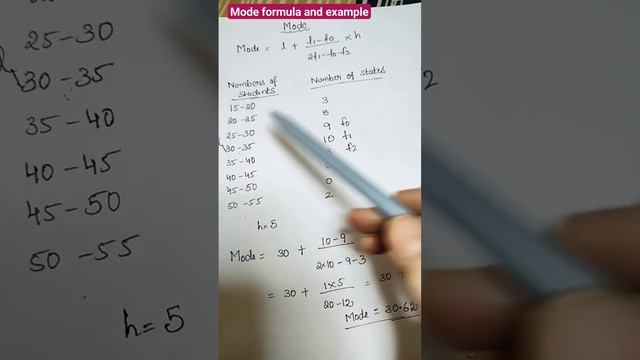 Mode formula and example
Mode
Mode = l + f1-f0 / 2f1-f0-f2 × h
Numbers of students Number of states
15-20 3
20-25 8
25-30 9 f0
30-35 10 f1
35-40 f2
40-45
45-50 0
50-55 2
h=5
Mode = 30 + 10-9 / 2×10-9-3
= 30 + 1×5 / 20-12 = 30 +
Mode = 30.62
25-30
30-35
35-40
40-45
45-50
50-55
h=5